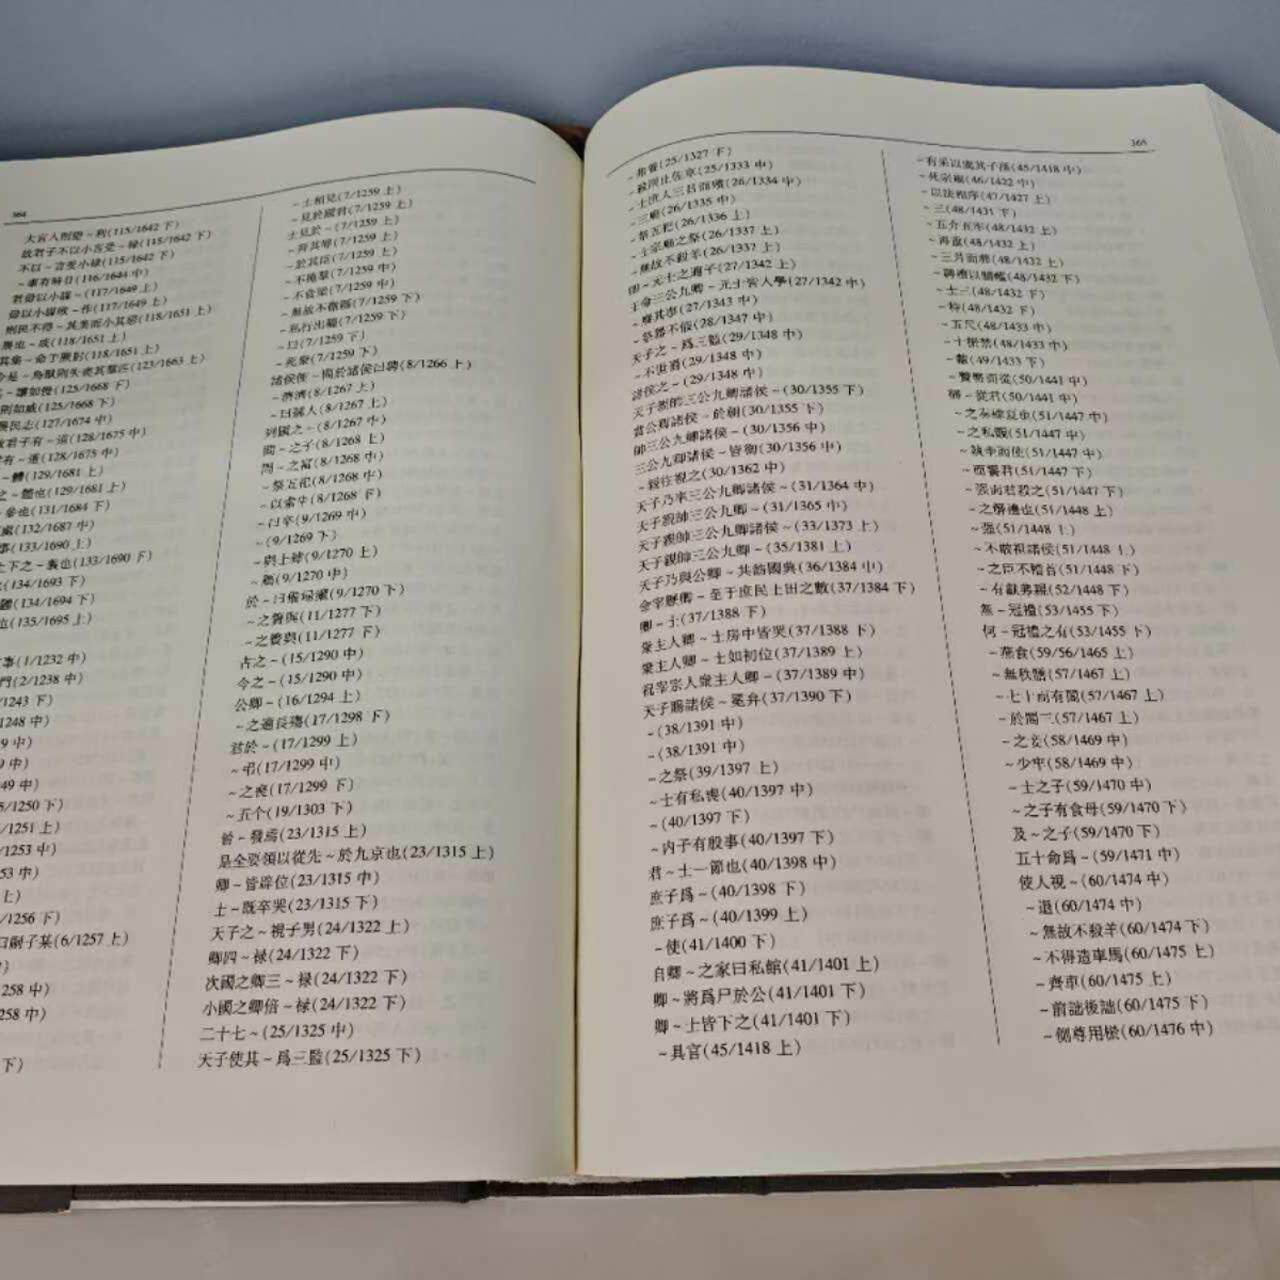 364
大言入則望~利(115/1642 下)
故君子不以小言受~祿(115/1642 下)
不以~言受小祿(115/1642 下)
~事有時日(116/1644 中)
君毋以小謀~(117/1649 上)
毋以小謀敗~作(117/1649 上)
則民不得~其美而小其惡(118/1651 上)
展也~成(118/1651 上)
其集~命于厥躬(118/1651 上)
今是~鳥獸則失喪其羣匹(123/1663 上)
~讓如慢(125/1668 下)
則如威(125/1668 下)
畏民志(127/1674 中)
故君子有~道(128/1675 中)
有~道(128/1675 中)
~體(129/1681 上)
之~體也(129/1681 上)
~參也(131/1684 下)
(132/1687 中)
事(133/1690 上)
上下之~義也(133/1690 下)
(134/1693 下)
體(134/1694 下)
也(135/1695 上)
事(1/1232 中)
門(2/1238 中)
/1243 下)
1248 中)
9 中)
9 中)
49 中)
5/1250 下)
/1251 上)
/1253 中)
53 中)
上)
/1256 下)
曰嗣子某(6/1257 上)
258 中)
258 中)
下)
~士相見(7/1259 上)
~見於國君(7/1259 上)
士見於~(7/1259 上)
~拜其辱(7/1259 上)
~於其臣(7/1259 上)
~不掩羣(7/1259 中)
~不食粱(7/1259 中)
~無故不徹縣(7/1259 下)
~私行出疆(7/1259 下)
~曰(7/1259 下)
~死衆(7/1259 下)
諸侯使~問於諸侯曰聘(8/1266 上)
~濟濟(8/1267 上)
~曰孺人(8/1267 上)
列國之~(8/1267 中)
問~之子(8/1268 上)
問~之富(8/1268 中)
~祭五祀(8/1268 中)
~以索牛(8/1268 下)
~曰卒(9/1269 中)
~(9/1269 下)
~與士肄(9/1270 上)
~鴈(9/1270 中)
於~曰備埽灑(9/1270 下)
~之簀與(11/1277 下)
~之簀與(11/1277 下)
古之~(15/1290 中)
今之~(15/1290 中)
公卿~(16/1294 上)
~之適長殤(17/1298 下)
君於~(17/1299 上)
~弔(17/1299 中)
~之喪(17/1299 下)
~五个(19/1303 下)
晉~發焉(23/1315 上)
是全要領以從先~於九京也(23/1315 上)
卿~皆辟位(23/1315 中)
士~既卒哭(23/1315 下)
天子之~視子男(24/1322 上)
卿四~祿(24/1322 下)
次國之卿三~祿(24/1322 下)
小國之卿倍~祿(24/1322 下)
二十七~(25/1325 中)
天子使其~爲三監(25/1325 下)
365
~弗養(25/1327 下)
~殺則止佐車(25/1333 中)
~士庶人三日而殯(26/1334 中)
~三廟(26/1335 中)
~祭五祀(26/1336 上)
~士宗廟之祭(26/1337 上)
~無故不殺羊(26/1337 上)
卿~元士之適子(27/1342 上)
王命三公九卿~元士皆入學(27/1342 中)
~廢其事(27/1343 中)
~祭器不假(28/1347 中)
天子之~爲三監(29/1348 中)
~不世爵(29/1348 中)
諸侯之~(29/1348 中)
天子親帥三公九卿諸侯~(30/1355 下)
賞公卿諸侯~於朝(30/1355 下)
帥三公九卿諸侯~(30/1356 中)
三公九卿諸侯~皆御(30/1356 中)
~親往視之(30/1362 中)
天子乃率三公九卿諸侯~(31/1364 中)
天子親帥三公九卿~(31/1365 中)
天子親帥三公九卿諸侯~(33/1373 上)
天子親帥三公九卿~(35/1381 上)
天子乃與公卿~共飭國典(36/1384 中)
命宰歷卿~至于庶民土田之數(37/1384 下)
卿~士(37/1388 下)
衆主人卿~士房中皆哭(37/1388 下)
衆主人卿~士如初位(37/1389 上)
祝宰宗人衆主人卿~(37/1389 中)
天子賜諸侯~冕弁(37/1390 下)
~(38/1391 中)
~(38/1391 中)
~之祭(39/1397 上)
~士有私喪(40/1397 中)
~(40/1397 下)
~內子有殷事(40/1397 下)
君~士一節也(40/1398 中)
庶子爲~(40/1398 下)
庶子爲~(40/1399 上)
~使(41/1400 下)
自卿~之家曰私館(41/1401 上)
卿~將爲尸於公(41/1401 下)
卿~士皆下之(41/1401 下)
~具官(45/1418 上)
~有采以處其子孫(45/1418 中)
~死宗廟(46/1422 中)
~以法相序(47/1427 上)
~三(48/1431 下)
~五介五牢(48/1432 上)
~再重(48/1432 上)
~三月而葬(48/1432 上)
~聘禮以脯醢(48/1432 下)
~士三(48/1432 下)
~黻(48/1432 下)
~五尺(48/1433 中)
~士棜禁(48/1433 中)
~(49/1433 下)
~贊幣而從(50/1441 中)
卿~從君(50/1441 中)
~之奏肆夏也(51/1447 中)
~之私覿(51/1447 中)
~執圭而使(51/1447 中)
~而饗君(51/1447 下)
~強而君殺之(51/1447 下)
~之僭禮也(51/1448 上)
~強(51/1448 上)
~不敢祖諸侯(51/1448 上)
~之臣不稽首(51/1448 下)
~有獻弗親(52/1448 下)
無~冠禮(53/1455 下)
何~冠禮之有(53/1455 下)
~燕食(59/56/1465 上)
~無秩膳(57/1467 上)
~七十而有閣(57/1467 上)
~於閣三(57/1467 上)
~之妾(58/1469 中)
~少牢(58/1469 中)
~士之子(59/1470 中)
~之子有食母(59/1470 下)
及~之子(59/1470 下)
五十命爲~(59/1471 中)
使人視~(60/1474 中)
~退(60/1474 中)
~無故不殺羊(60/1474 下)
~不得造車馬(60/1475 上)
~齊車(60/1475 上)
~前詘後詘(60/1475 下)
~側尊用棜(60/1476 中)